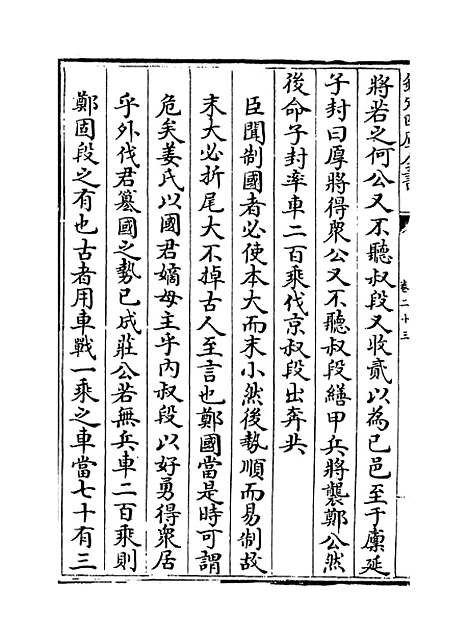 欽定四庫全書
卷二十三
將若之何公又不聽叔段又收貳以為已邑至于廩延
子封曰厚將得衆公又不聽叔段繕甲兵將襲鄭公然
後命子封率車二百乘伐京叔段出奔共
臣聞制國者必使本大而末小然後勢順而易制故
末大必折尾大不掉古人至言也鄭國當是時可謂
危矣姜氏以國君嫡母主乎內叔段以好勇得衆居
乎外伐君簒國之勢已成莊公若無兵車二百乘則
鄭固段之有也古者用車戰一乘之車當七十有三